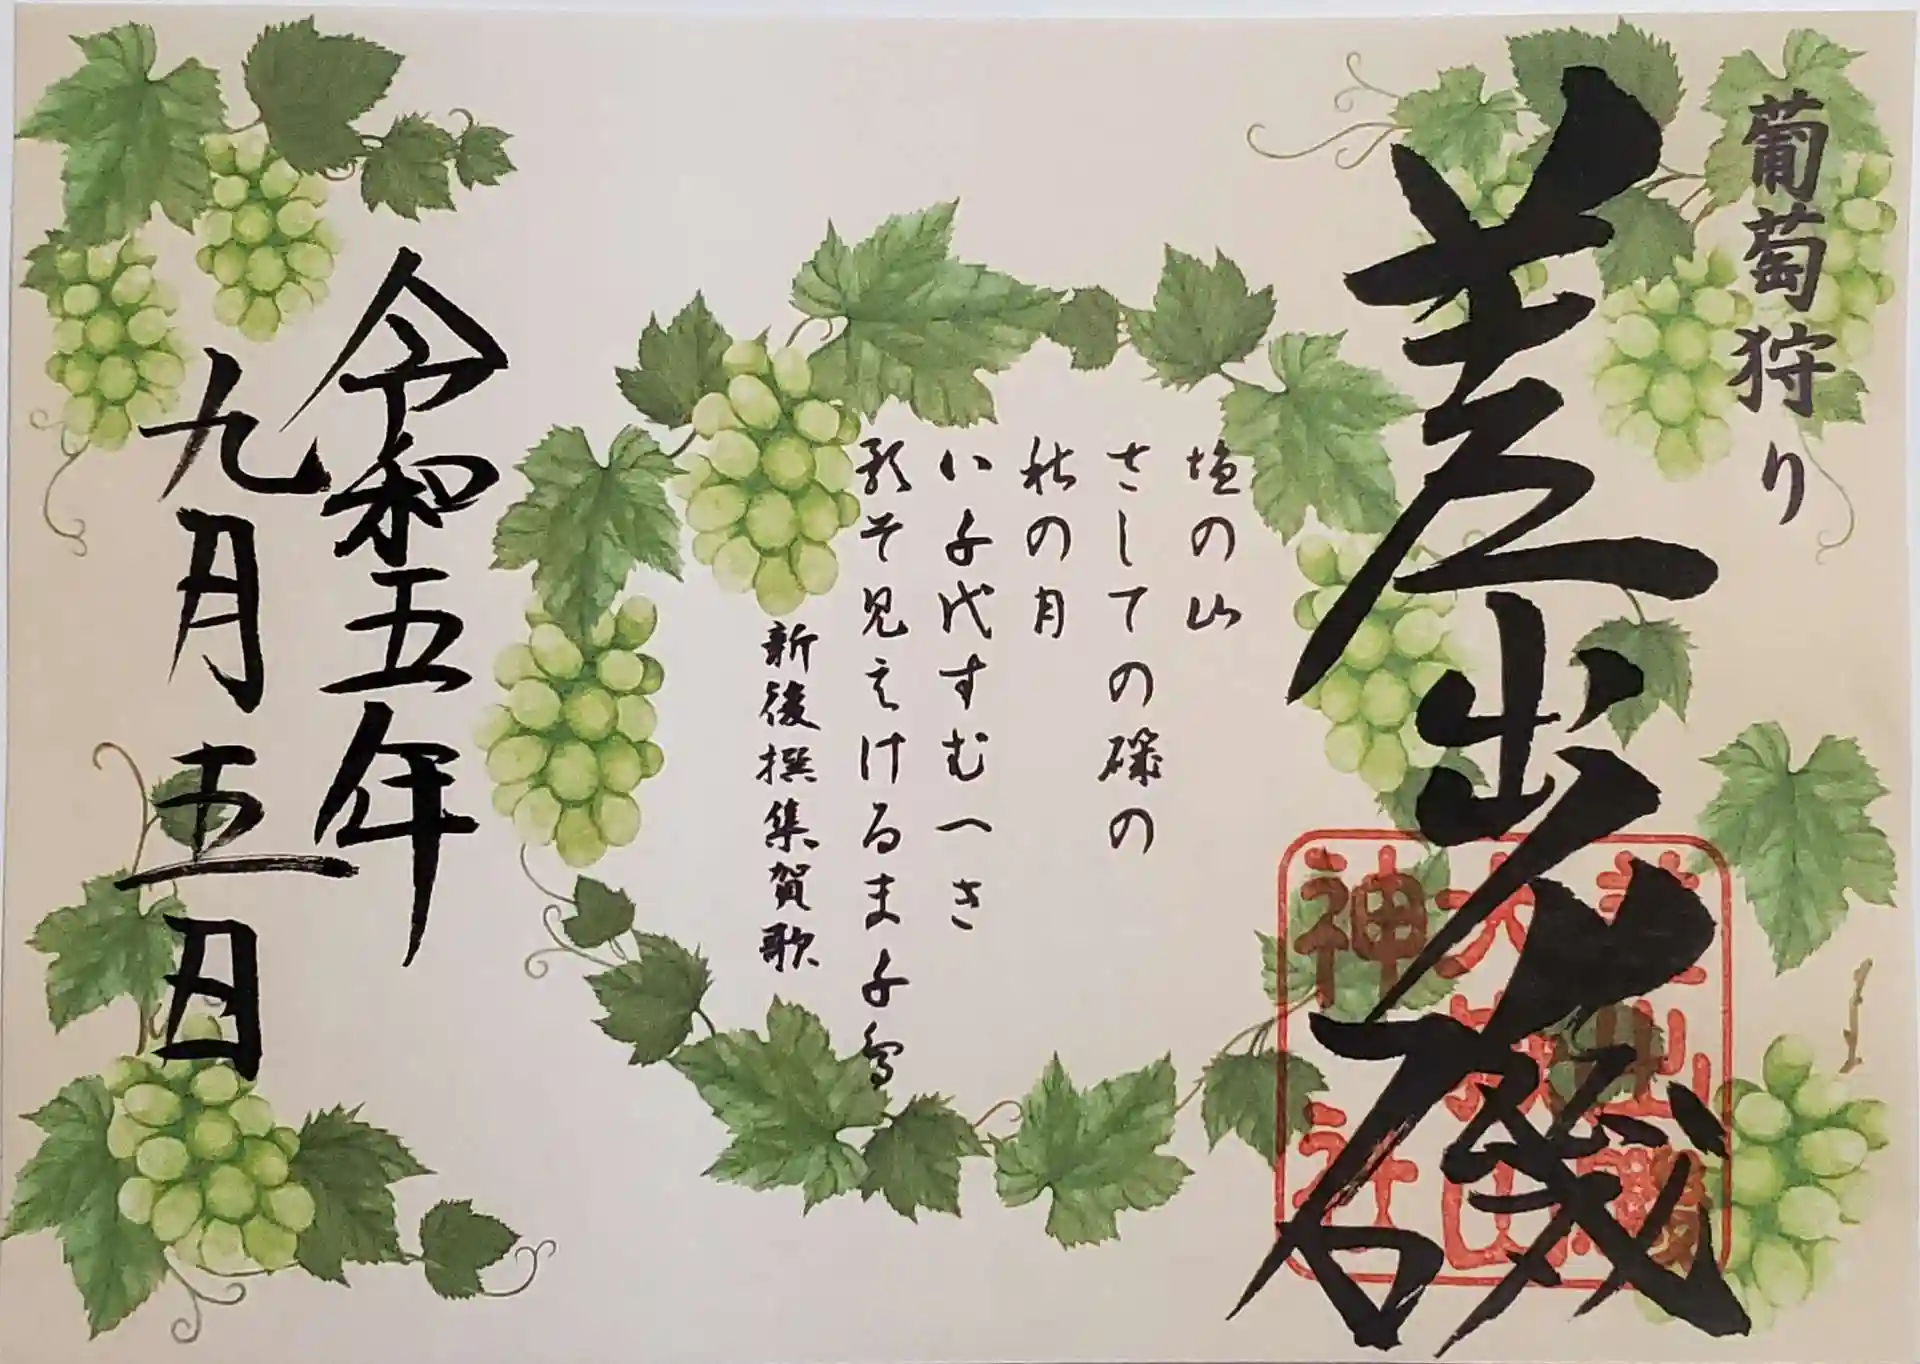 葡萄狩り
差出磯
塩の山
さしての磯の
秋の月
八千代すむへき
影そ見えけるま千鳥
新後撰集賀歌
令和五年
九月五日
差出磯
大嶽山
神社